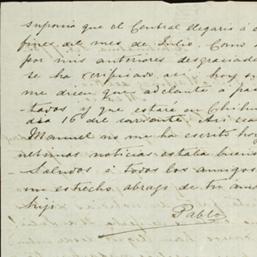 suponía que el Central llegaria á
fines del mes de Julio. Como
por mis anteriores desgraciada
se ha verificado asi, hoy
me dicen que adelante á pa
y que estará en Chihu
dia 16 del corriente.
Manuel no me ha escrito hoy
ultimas noticias estaba bueno
Saludos á todos los amigos
un estrecho abrazo de tu
hijo
Pablo